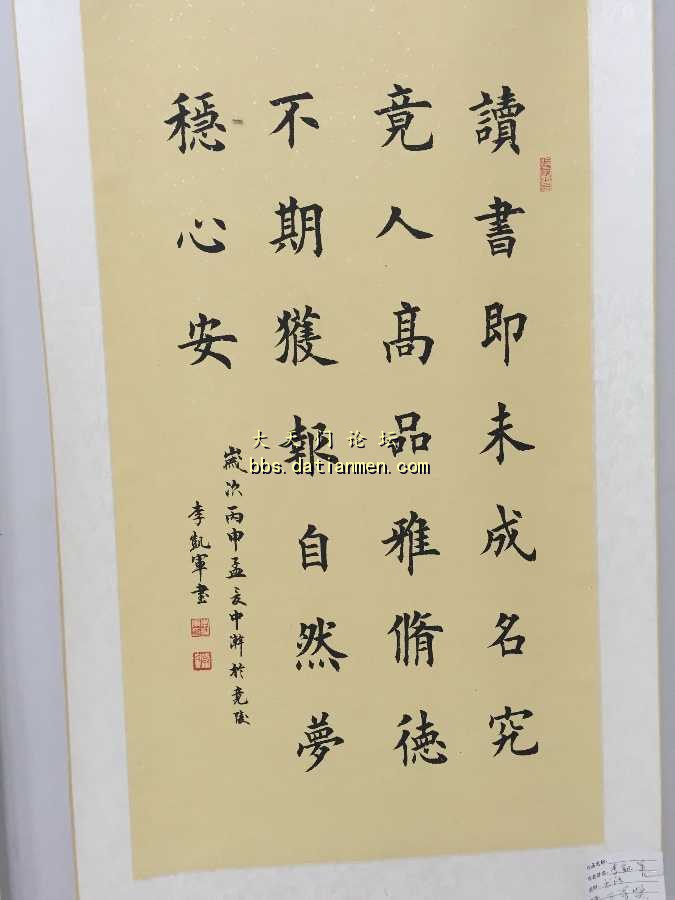 讀書即未成名究
竟人髙品雅脩德
不期獲報自然夢
穩心安
歲次丙申孟夏中澣於竟陵
李凱軍書
大天门论坛
bbs.datianmen.com